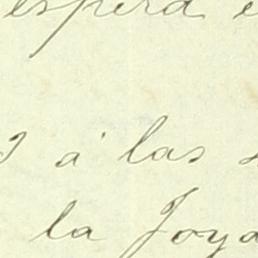 espera e
á las
la Joya